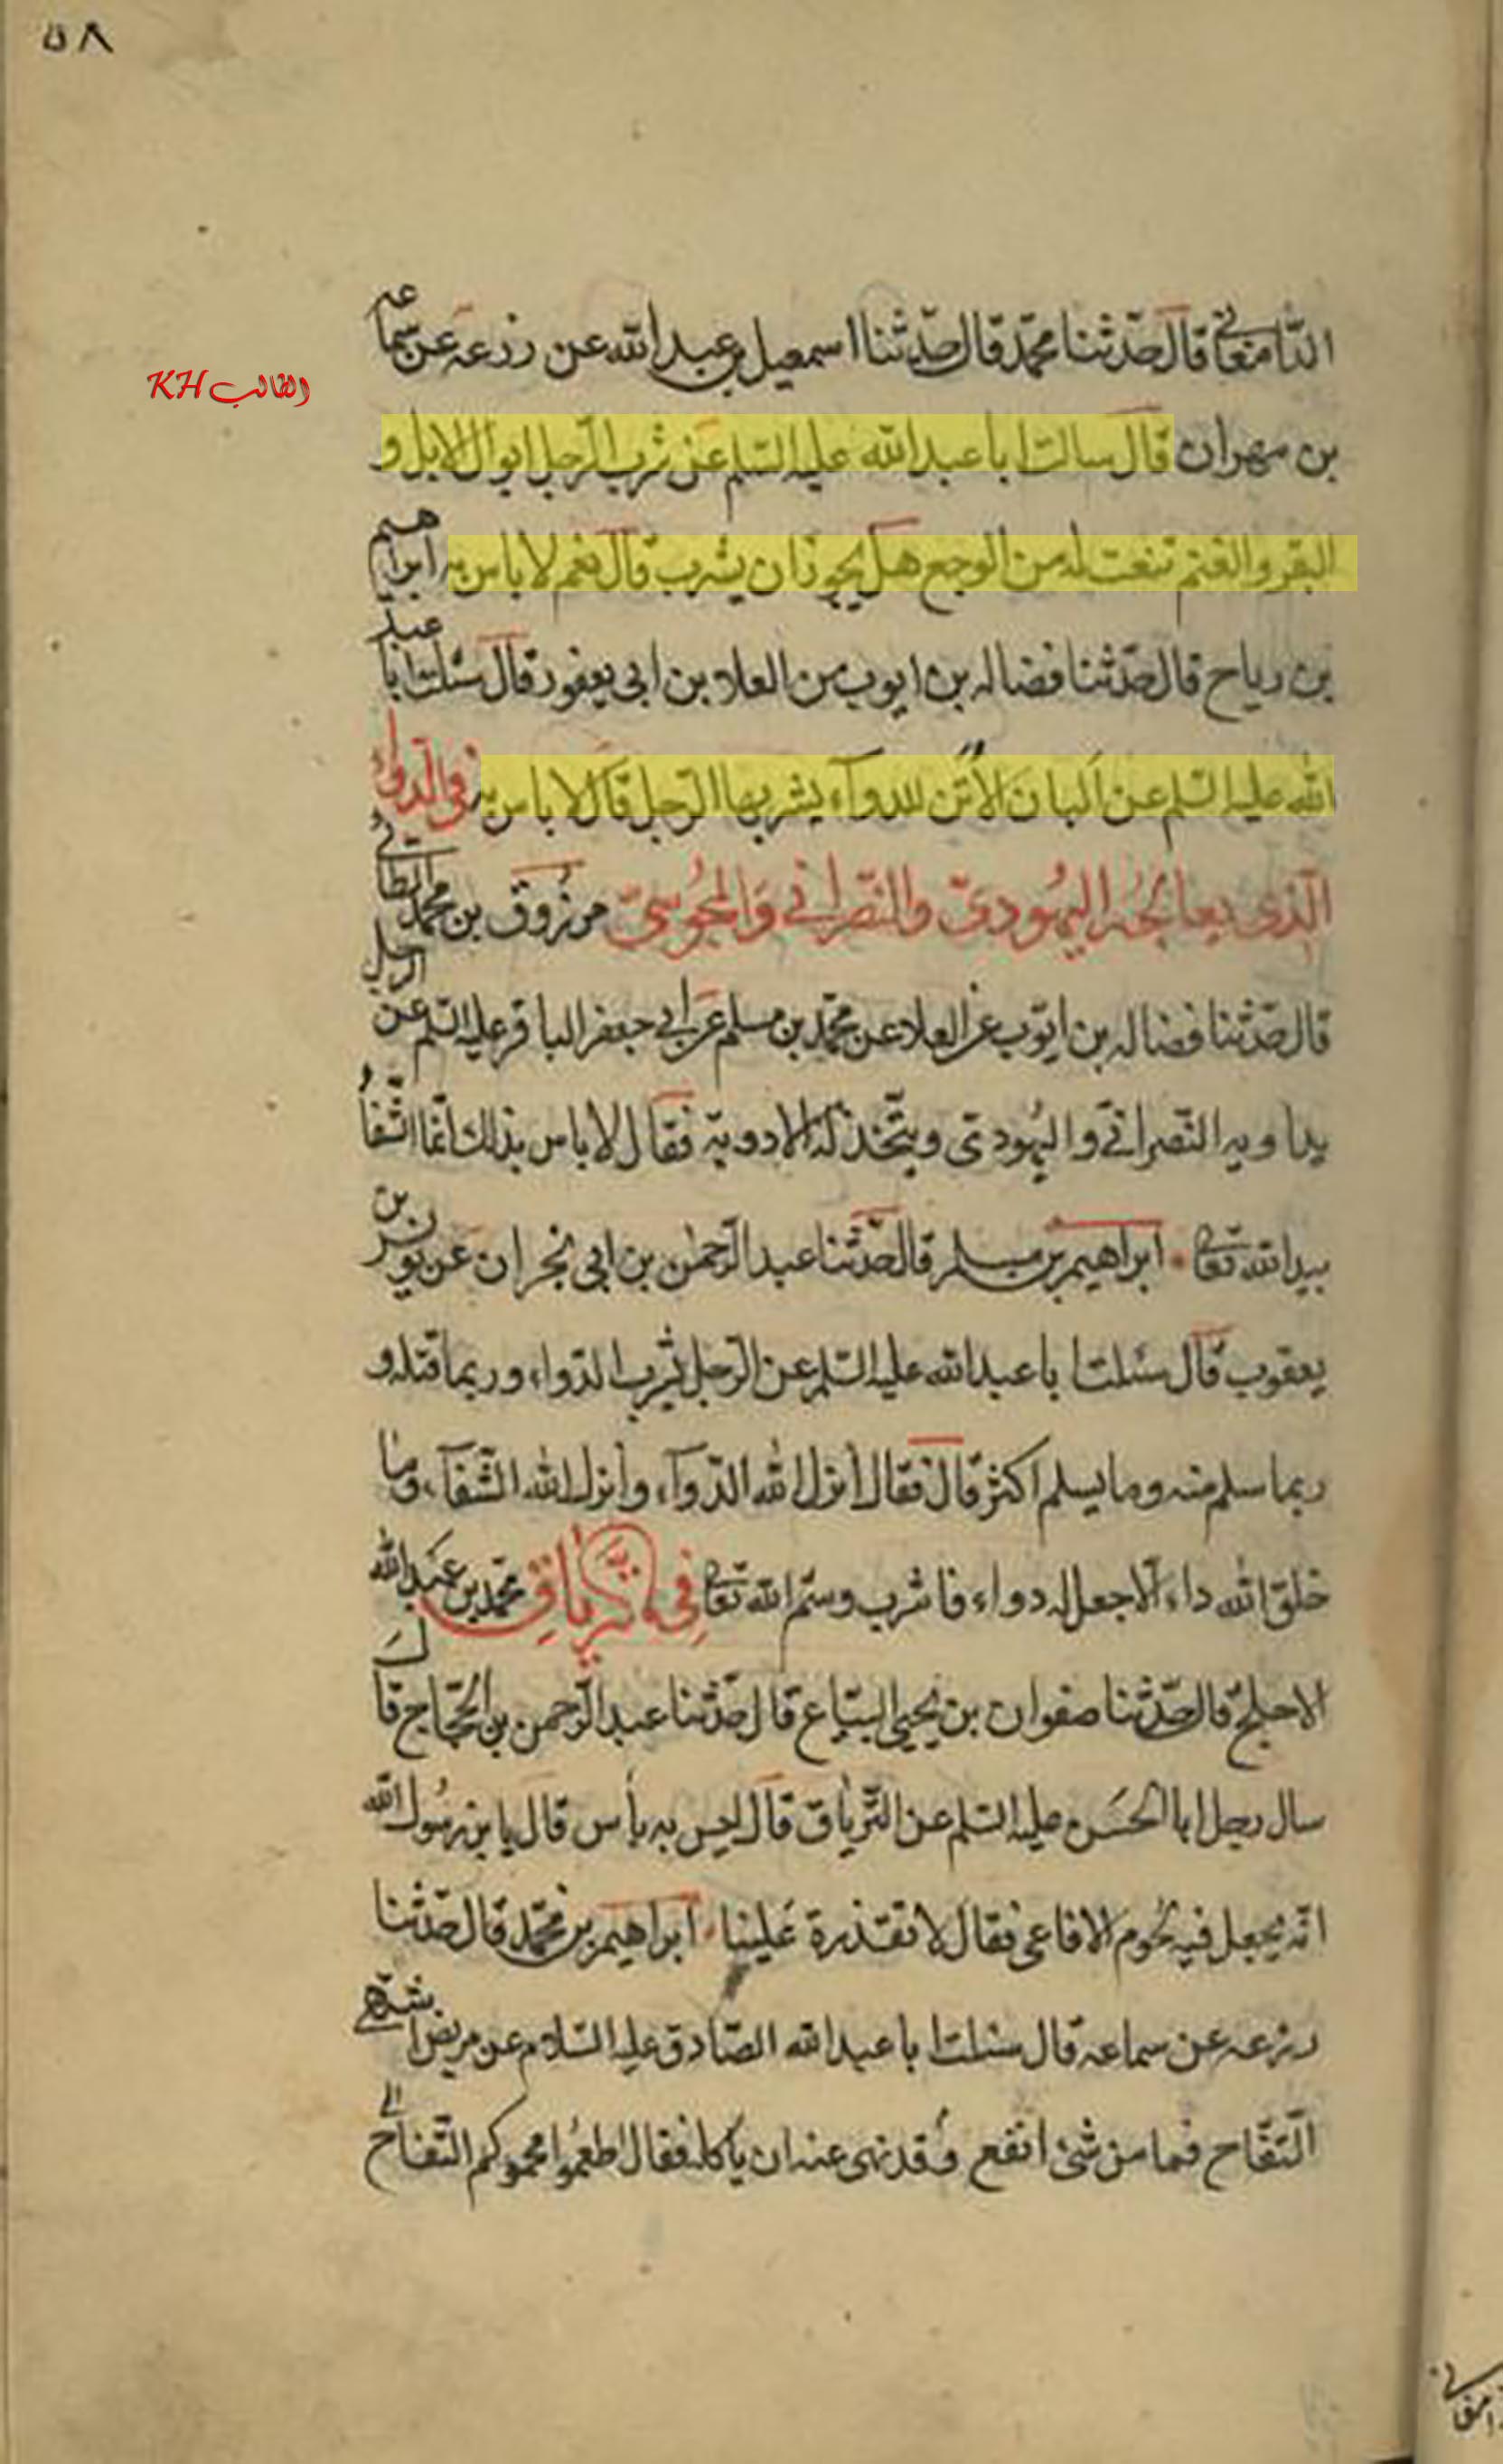 ٥٨
الدّامغاني قال حدّثنا محمّد قال حدّثنا اسمعيل بن عبد الله عن زرعه عن سماعه
الطالب KH
بن مهران قال سالت ابا عبد الله عليه السّلم عن شرب الرّجل ابوال الابل و
البقر والغنم تنعت له من الوجع هل يجوز ان يشرب قال نعم لا باس به ابراهيم
بن رياح قال حدّثنا فضاله بن ايوب عن العلا بن ابي يعفور قال سئلت ابا عبد
الله عليه السّلم عن البان الأتن للدوآء يشربها الرّجل قال لا باس به في الدوآء
الّذي يعالجه اليهودىّ والنّصرانيّ والمجوسيّ مرزوق بن محمد الطائي
قال حدّثنا فضاله بن ايّوب عن العلا عن محمّد بن مسلم عن ابي جعفر الباقر عليه السّلم عن الرجل
يداويه النّصرانيّ واليهودى ويتّخذ له الادوية فقال لا باس بذلك انّما الشّفاء
بيد الله تعالى ابراهيم بن مسلم قال حدّثنا عبد الرّحمن بن ابي نجران عن يونس بن
يعقوب قال سئلت ابا عبد الله عليه السّلم عن الرّجل يشرب الدّواء وربما قتله و
ربما سلم منه وما يسلم اكثر قال فقال أنزل الله الدّوآء وأنزل الله الشّفآء وما
خلق الله داء الّا جعل له دواء فاشرب وسمّ الله تعالى في الترياق محمّد بن عبد الله
الاجلح قال حدّثنا صفوان بن يحيى البيّاع قال حدّثنا عبد الرّحمن بن الحجّاج قال
سال رجل ابا الحسن عليه السّلم عن التّرياق قال ليس به بأس قال يا بن رسول الله
انّه يجعل فيه لحوم الافاعي فقال لا تقذره علينا ابراهيم بن محمّد قال حدّثنا
زرعه عن سماعه قال سئلت ابا عبد الله الصّادق عليه السّلام عن مريض اشتهى
التفّاح فما من شئ انفع وقد نهى عنه ان ياكله فقال اطعموا محموكم التّفاح